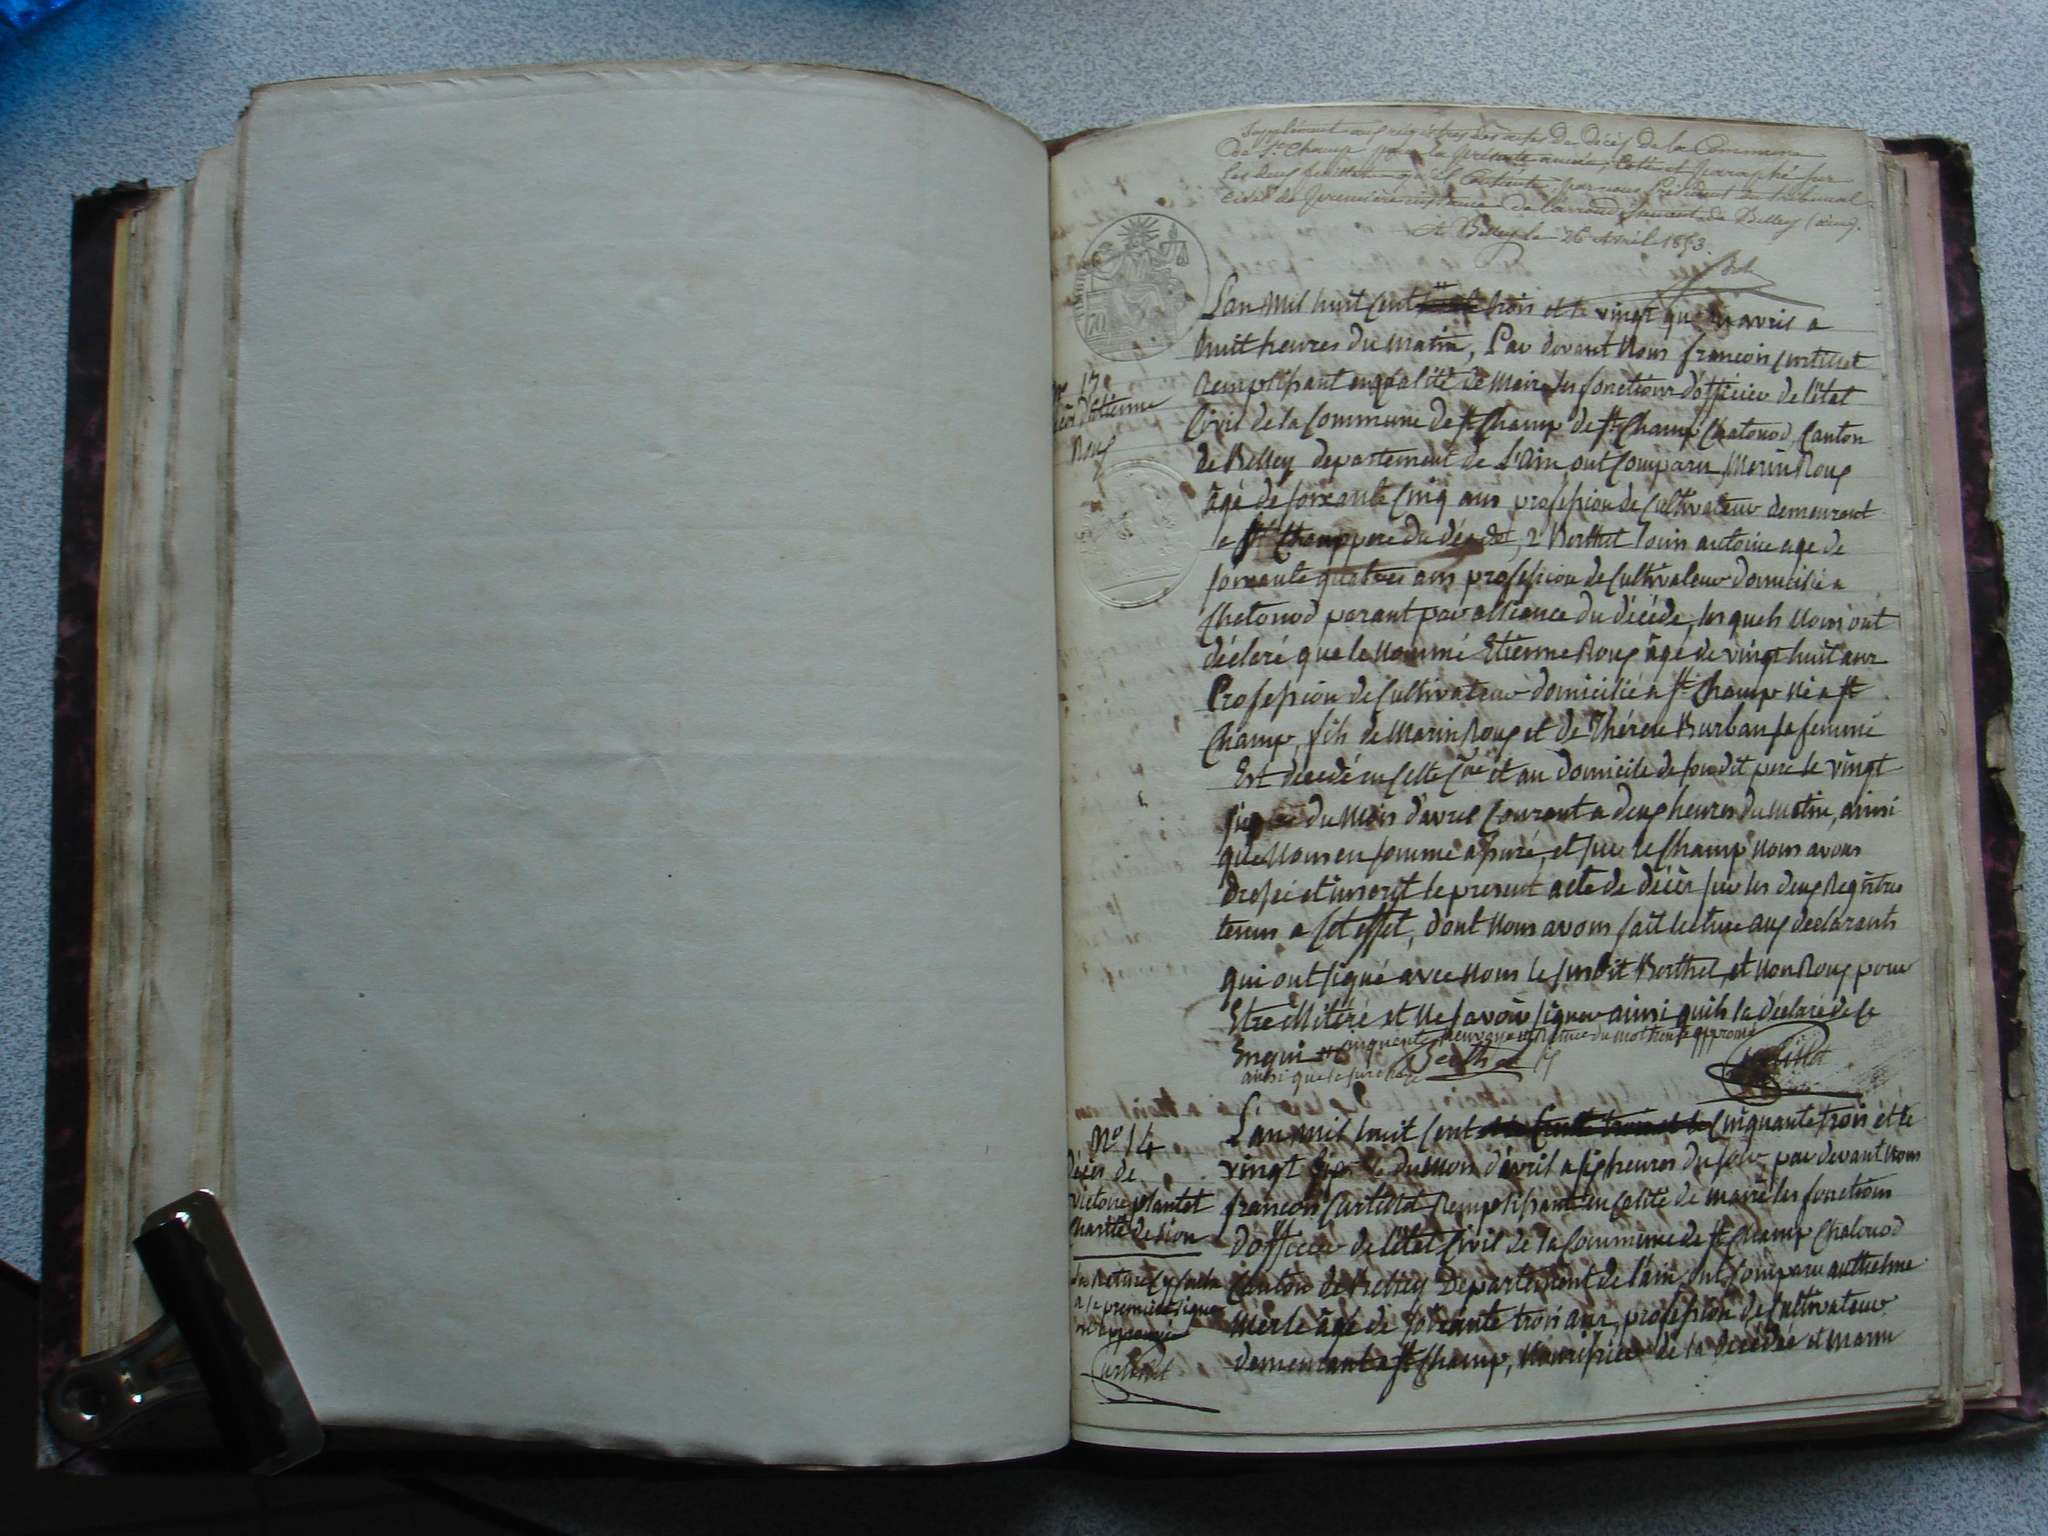 Supplément aux registres des actes de Décès de la Commune
de St Champ pour la présente année, Coté et paraphé sur
les deux feuillets qu'il contient par nous Président du tribunal
civil de première instance de l'arrondissement de Belley (ain).
A Belley le 26 Avril 1853.
L'an Mil huit Cent trois et le vingt avril a
huit heures du matin, Par devant Nous françois Curtillet
Remplissant en qualité de Maire les fonctions d'officier de l'état
Civil de la Commune de St Champ de St Champ Chatonod, Canton
de Belley departement de L'Ain ont Comparu, Marin Roux
âgé de soixante Cinq ans profession de Cultivateur demeurant
a St Champ pere du décédé, 2° Berthet louis antoine age de
soixante quatres ans profession de Cultivateur domicilié a
Chatonod parant par alliance du décédé, lesquels Nous ont
déclaré que le Nommé Etienne Roux âgé de vingt huit ans
Profession de Cultivateur domicilié a St Champ Né a St
Champ, fils de Marin Roux et de Thérèse Burban sa femme
Est décédé en Cette Cne et au domicile de son dit pere le vingt
six du Mois d'avril Courant a deux heures du Matin, ainsi
que Nous en somme assuré, et sur le Champ Nous avons
dressé et inscrit le present acte de décès sur les deux Registres
tenus a Cet effet, dont Nous avons fait lecture aux declarants
qui ont signé avec Nous le susdit Berthet, et Non Roux pour
Etre illitéré et Ne savoir signer ainsi qu'ils la déclaré de Ce
Enquis
cinquante du mot approuvé
ainsi que la surcharge
Berthet
Curtillet
N° 13
décès d'Etienne
Roux
L'an mil huit Cent Cinquante trois et le
vingt six du Mois d'avril a six heures du soir, par devant Nous
françois Curtillet Remplissant en Calité de maire les fonctions
d'officier de l'état Civil de la Commune de St Champ Chatonod
Canton de Belley Departement de l'ain ont Comparu anthelme
Merle âgé de soixante trois ans, profession de Cultivateur
demeurant a St Champ, Nourissier de la décédée et Marin
N° 14
décès de
victoire plantet
Charité de lion
la rature
a la premiere ligne
approuvée
Curtillet